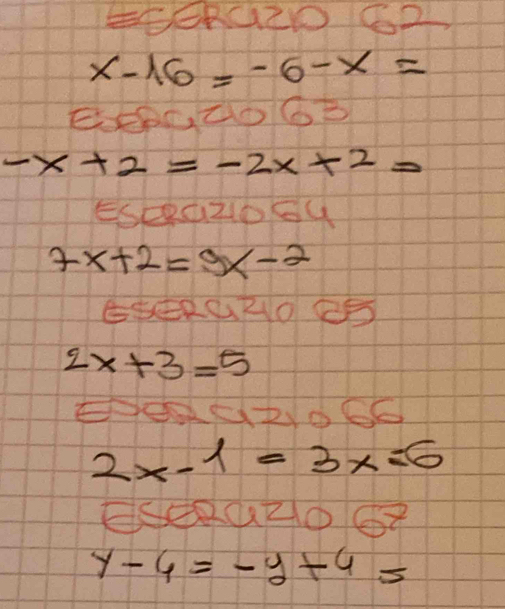 ESERCIZIO 62
x-16 = -6-x =
ESERCIZIO 63
-x+2 = -2x+2 =
ESERCIZIO 64
7x+2=9x-2
ESERCIZIO 65
2x+3=5
ESERCIZIO 66
2x-1 = 3x=6
ESERCIZIO 67
y-4=-y+4 =